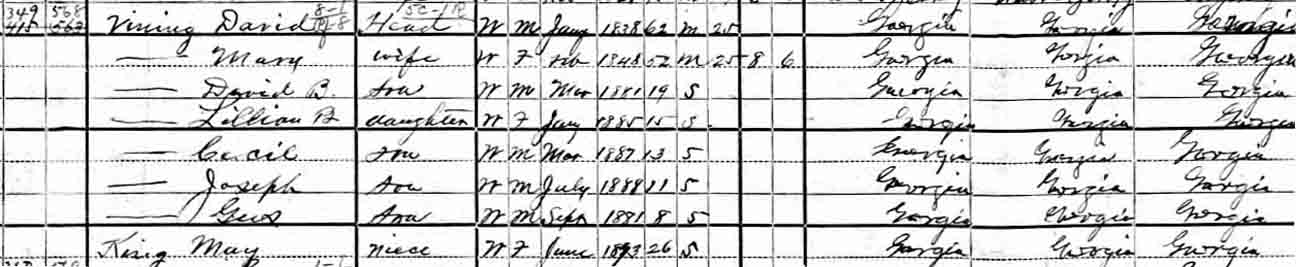 349 568 Vining David Head W M Jany 1838 62 M 25 Georgia Georgia Georgia
— Mary wife W F Feb 1848 52 M 25 8 6 Georgia Georgia Georgia
— David B. son W M Mar 1881 19 S Georgia Georgia Georgia
— Lillian B daughter W F Jany 1885 15 S Georgia Georgia Georgia
— Cecil son W M Mar 1887 13 S Georgia Georgia Georgia
— Joseph son W M July 1888 11 S Georgia Georgia Georgia
— Gus son W M Sept 1891 8 S Georgia Georgia Georgia
King May niece W F June 1873 26 S Georgia Georgia Georgia